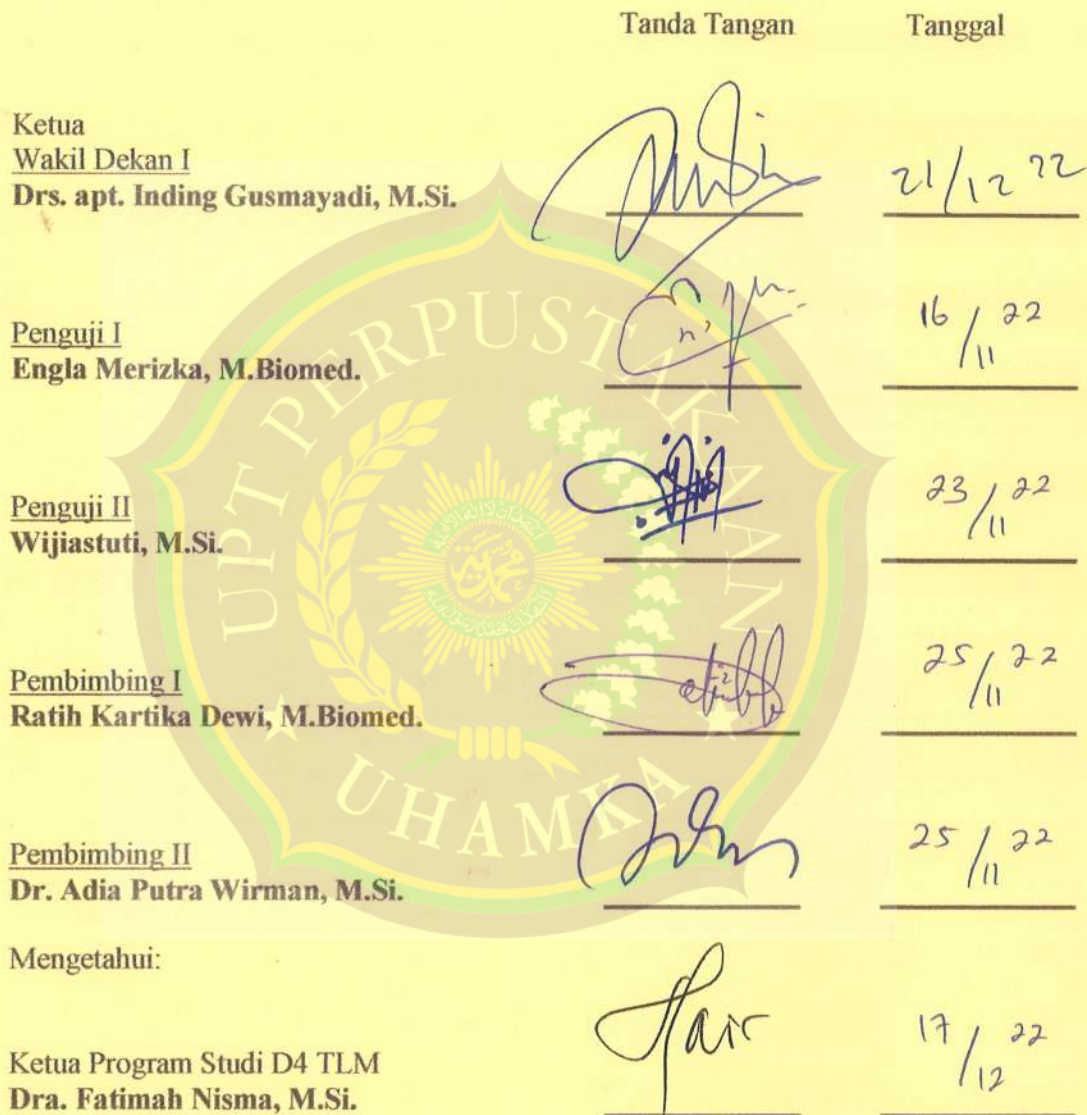 Tanda Tangan Tanggal
Ketua
Wakil Dekan I
Drs. apt. Inding Gusmayadi, M.Si.
21/12 22
Penguji I
Engla Merizka, M.Biomed.
16/11 22
Penguji II
Wijiastuti, M.Si.
23/11 22
Pembimbing I
Ratih Kartika Dewi, M.Biomed.
25/11 22
Pembimbing II
Dr. Adia Putra Wirman, M.Si.
25/11 22
Mengetahui:
Ketua Program Studi D4 TLM
Dra. Fatimah Nisma, M.Si.
17/12 22
UPT PERPUSTAKAAN
UHAMKA